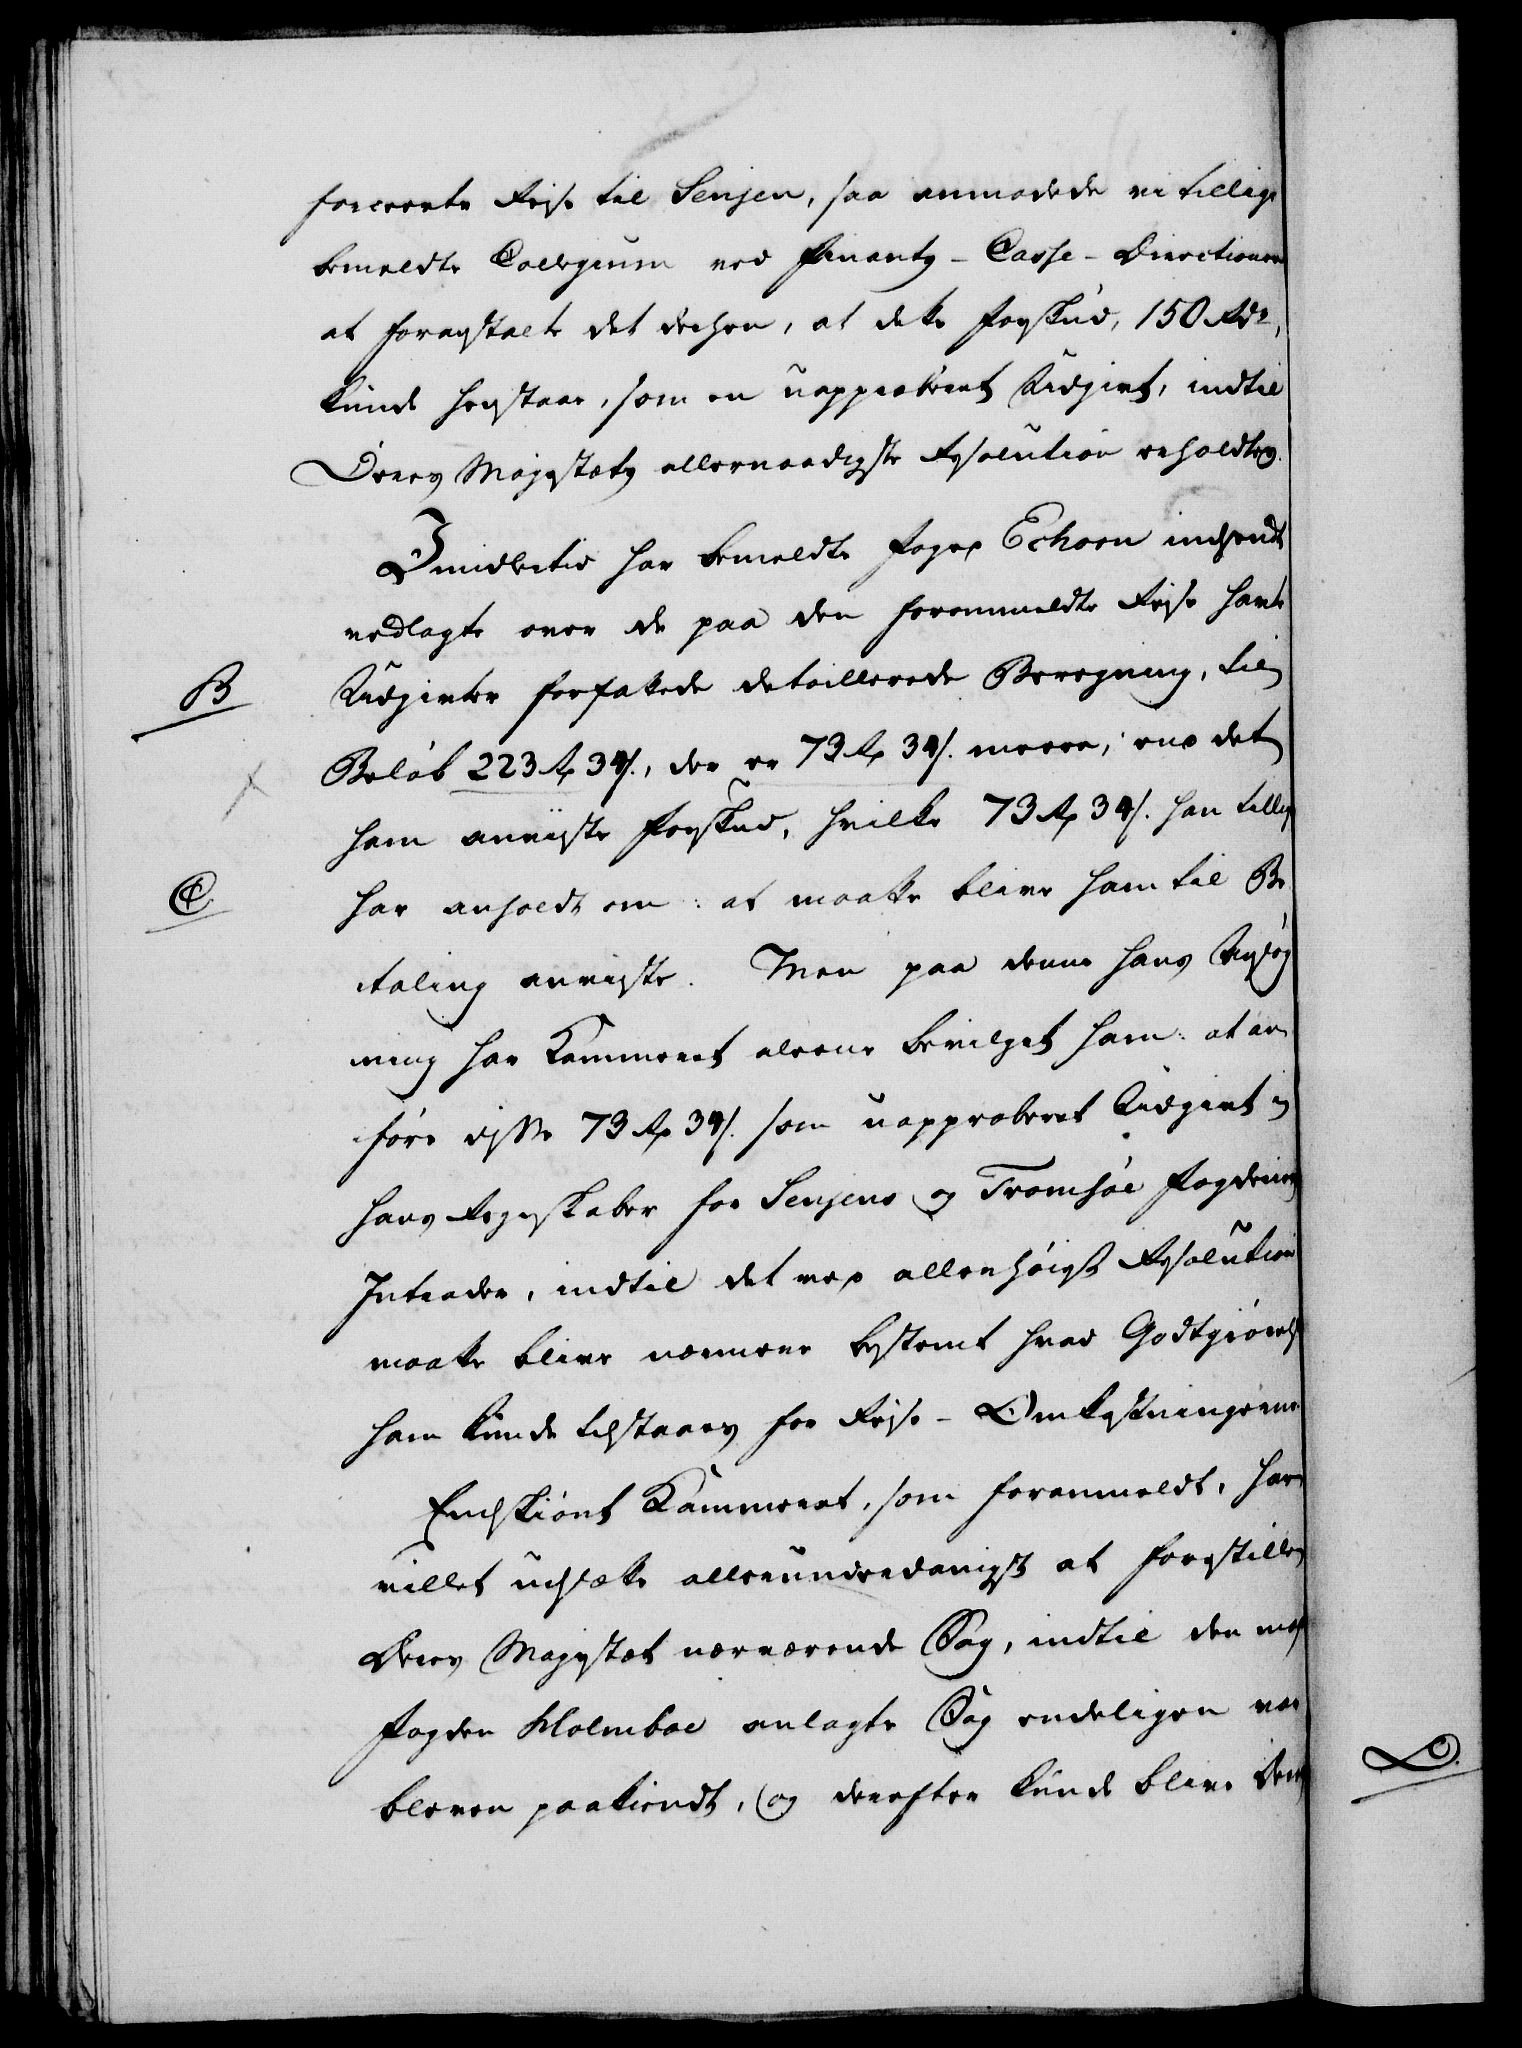 forceerte Rejse til Senjen, saa anmodede vi tillige
bemeldte Collegium ved Finants-Casse-Directionen
at foranstalte det derhen, at dette Forskud, 150 Rdr,
kunde henstaae, som en uapproberet Udgivt, indtil
Deres Majestæts allernaadigste Resolution erholdtes.
Imidlertid har bemeldte Foged Echorn indsendt
vedlagte over de paa den forommeldte Rejse havte
B
Udgivter forfattede detaillerede Beregning, til
Beløb 223 Rd 34 s., der er 73 Rd 34 s. meere, end det
ham anviiste Forskud, hvilke 73 Rd 34 s. han tillige
C
har anholdt om: at maatte blive ham til Be
taling anviiste. Men paa denne hans Ansøg
ning har Kammeret aleene bevilget ham: at an
føre disse 73 Rd 34 s. som uapproberet Udgivt i
hans Regnskaber for Senjens og Tromsøe Fogderies
Intrader, indtil det ved allerhøieste Resolution
maatte blive nærmere bestemt hvad Godtgiørelse
ham kunde tilstaaes for Rejse-Omkostningerne.
Endskiønt Kammeret, som foranmeldt, har
villet udsætte allerunderdanigst at forestille
Deres Majestæt nærværende Sag, indtil den mod
Fogden Holmboe anlagte Sag endeligen var
bleven paakiendt, og derefter kunde blive Deres
D.